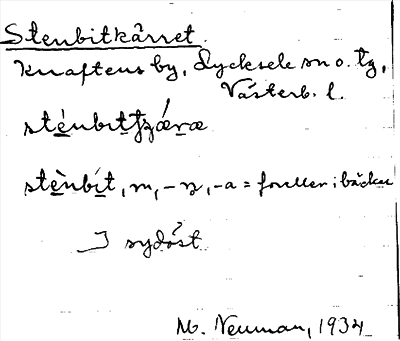 Stenbitkärret.
Knaftens by, Lycksele sn o. tg,
Västerb. l.
stènbit
stènbít, m, -n, -a = foreller i bäckar
sydöst
M. Neuman, 1934